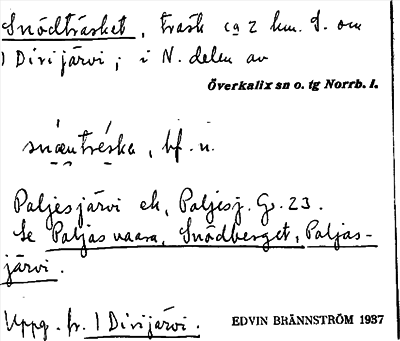 Snödträsket, träsk ca 2 km. S. om
1 Dirijärvi; i N. delen av
Överkalix sn o. tg Norrb. l.
snœntréska, bf. n.
Paljesjärvi ek, Paljesj. Gs. 23.
Se Paljasvaara, Snödberget, Paljas-
järvi.
Uppg. fr. 1 Dirijärvi.
EDVIN BRÄNNSTRÖM 1937